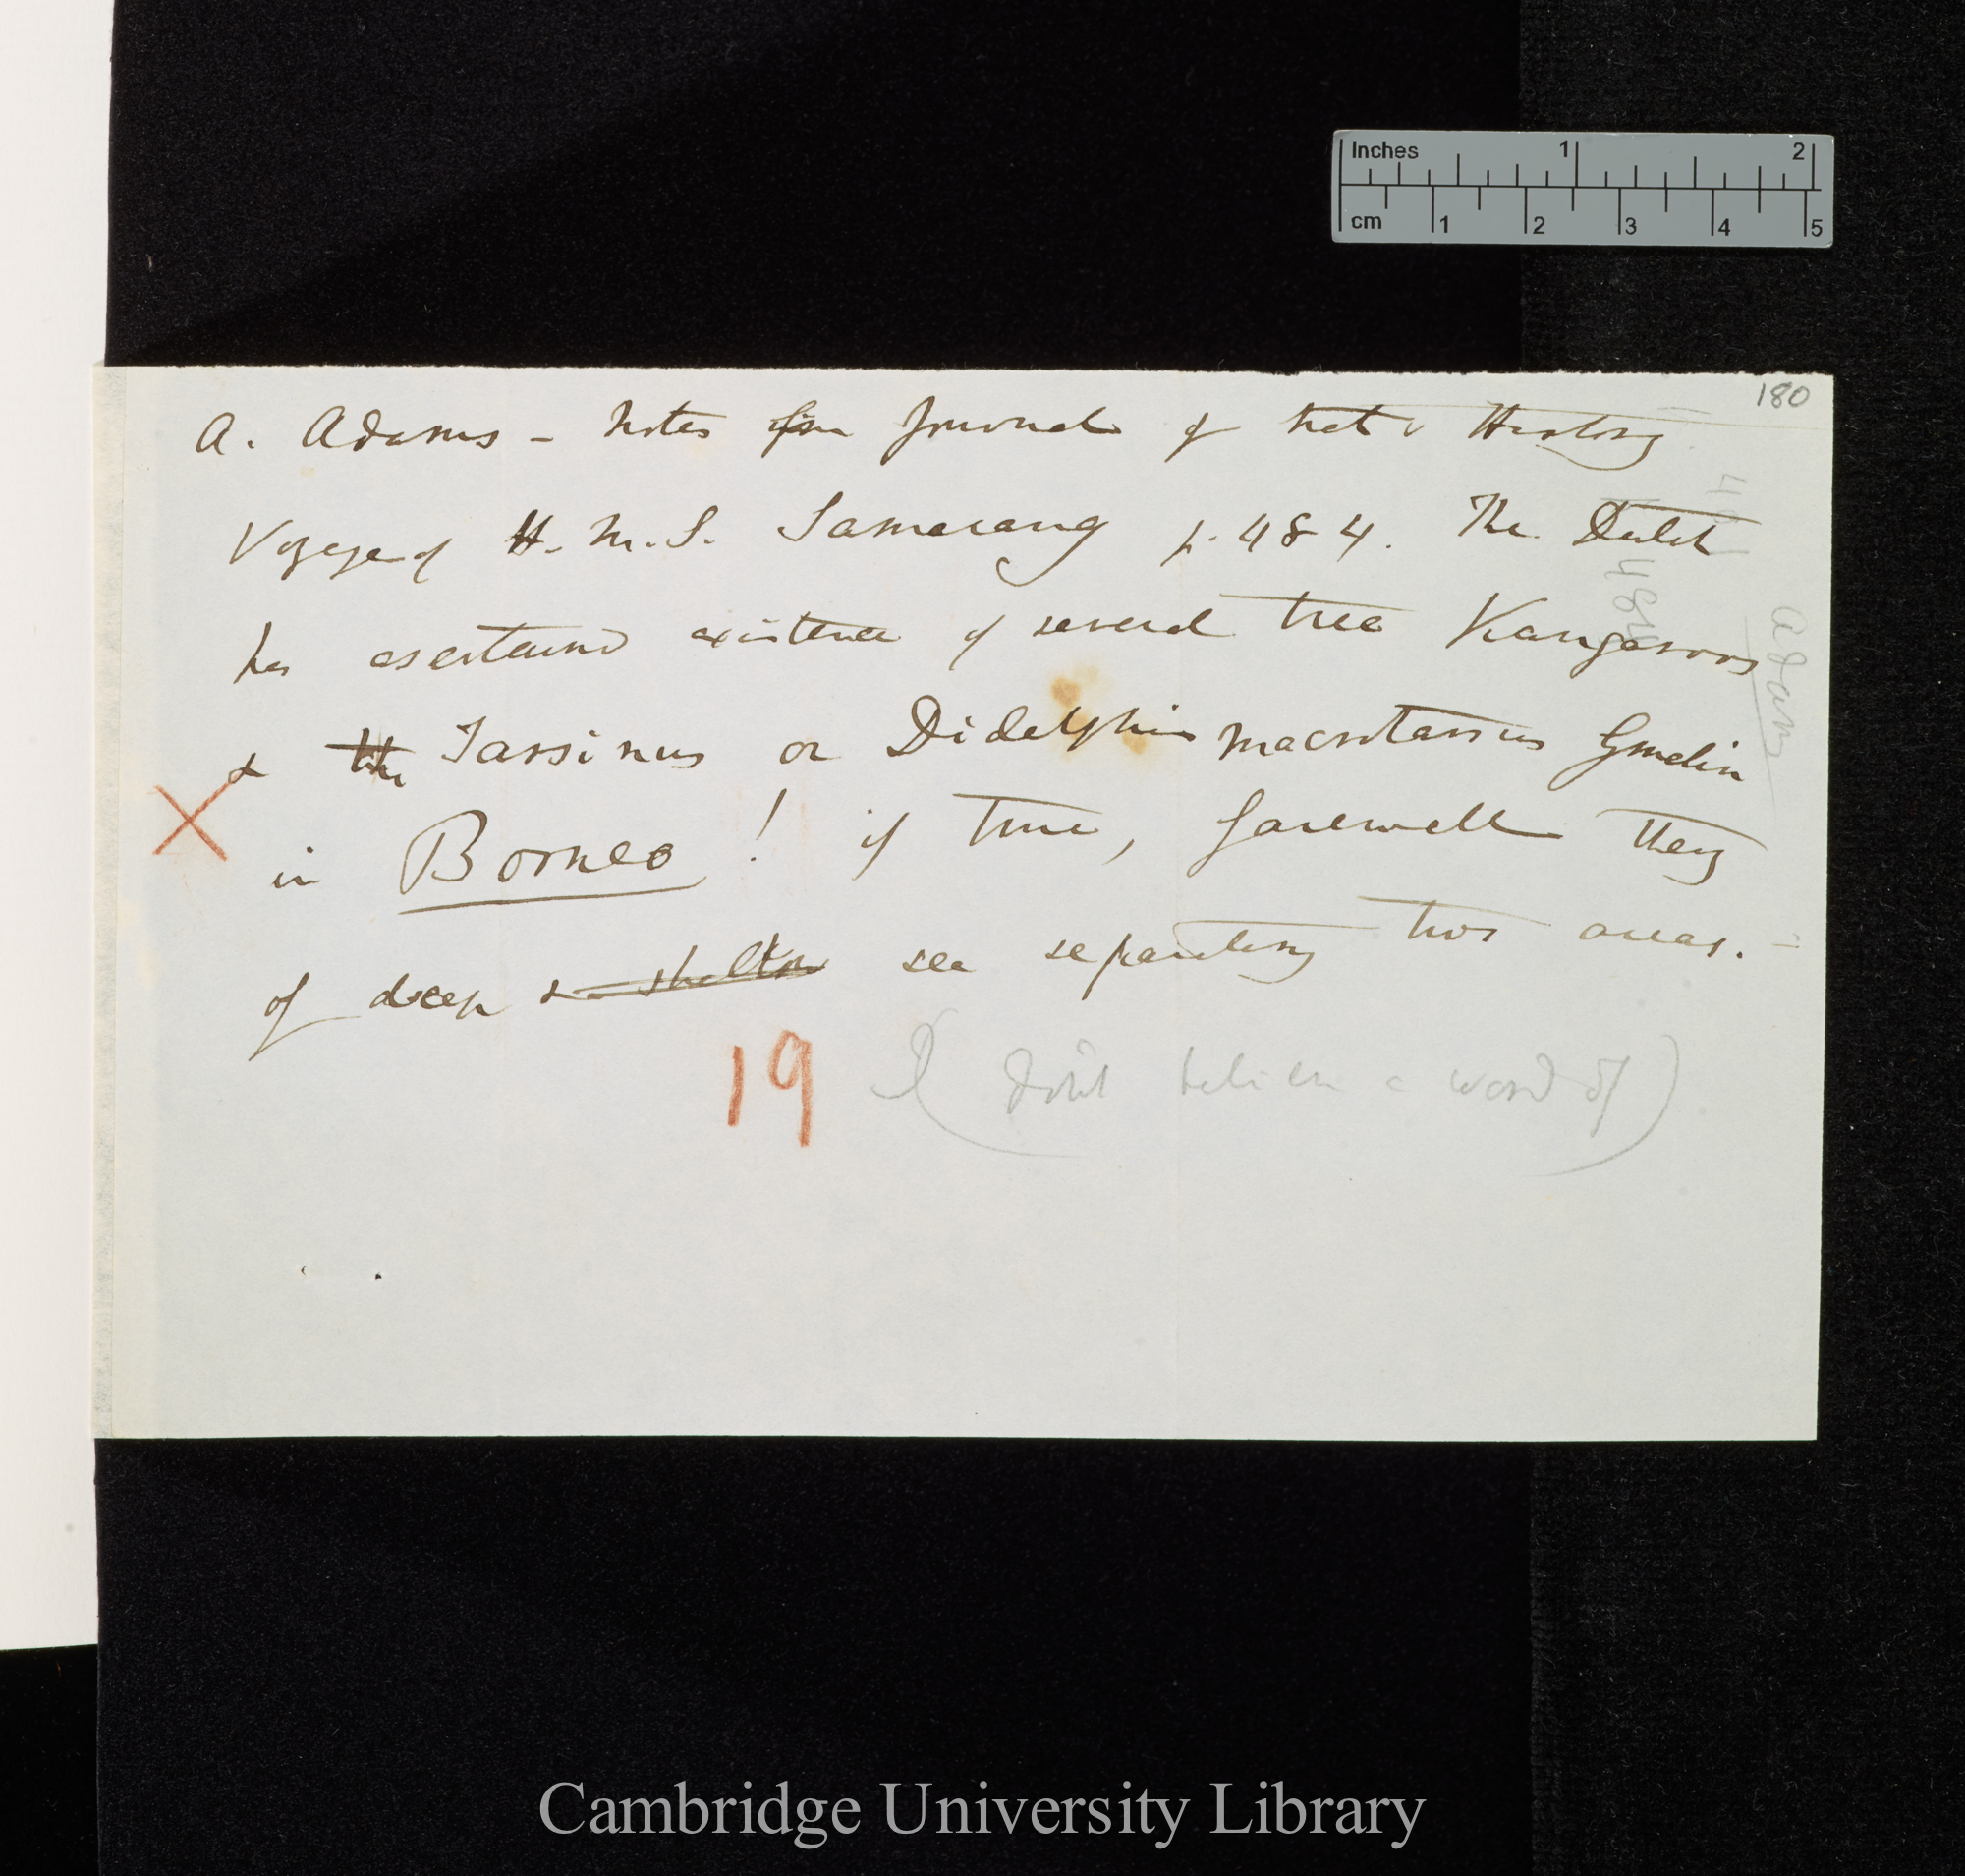 180
A. Adams - Notes from Journal of Nat. History
Voyage of H.M.S. Samarang p. 484. The Dutch
has ascertained existence of several tree Kangaroos
& the Tarsinus or Didelphis macrotarsus Gmelin
in Borneo! if true, farewell theory
of deep & shallow sea separating two areas. -
19 I (don't believe a word of)
Adams
484
Inches 1 2
cm 1 2 3 4 5
Cambridge University Library